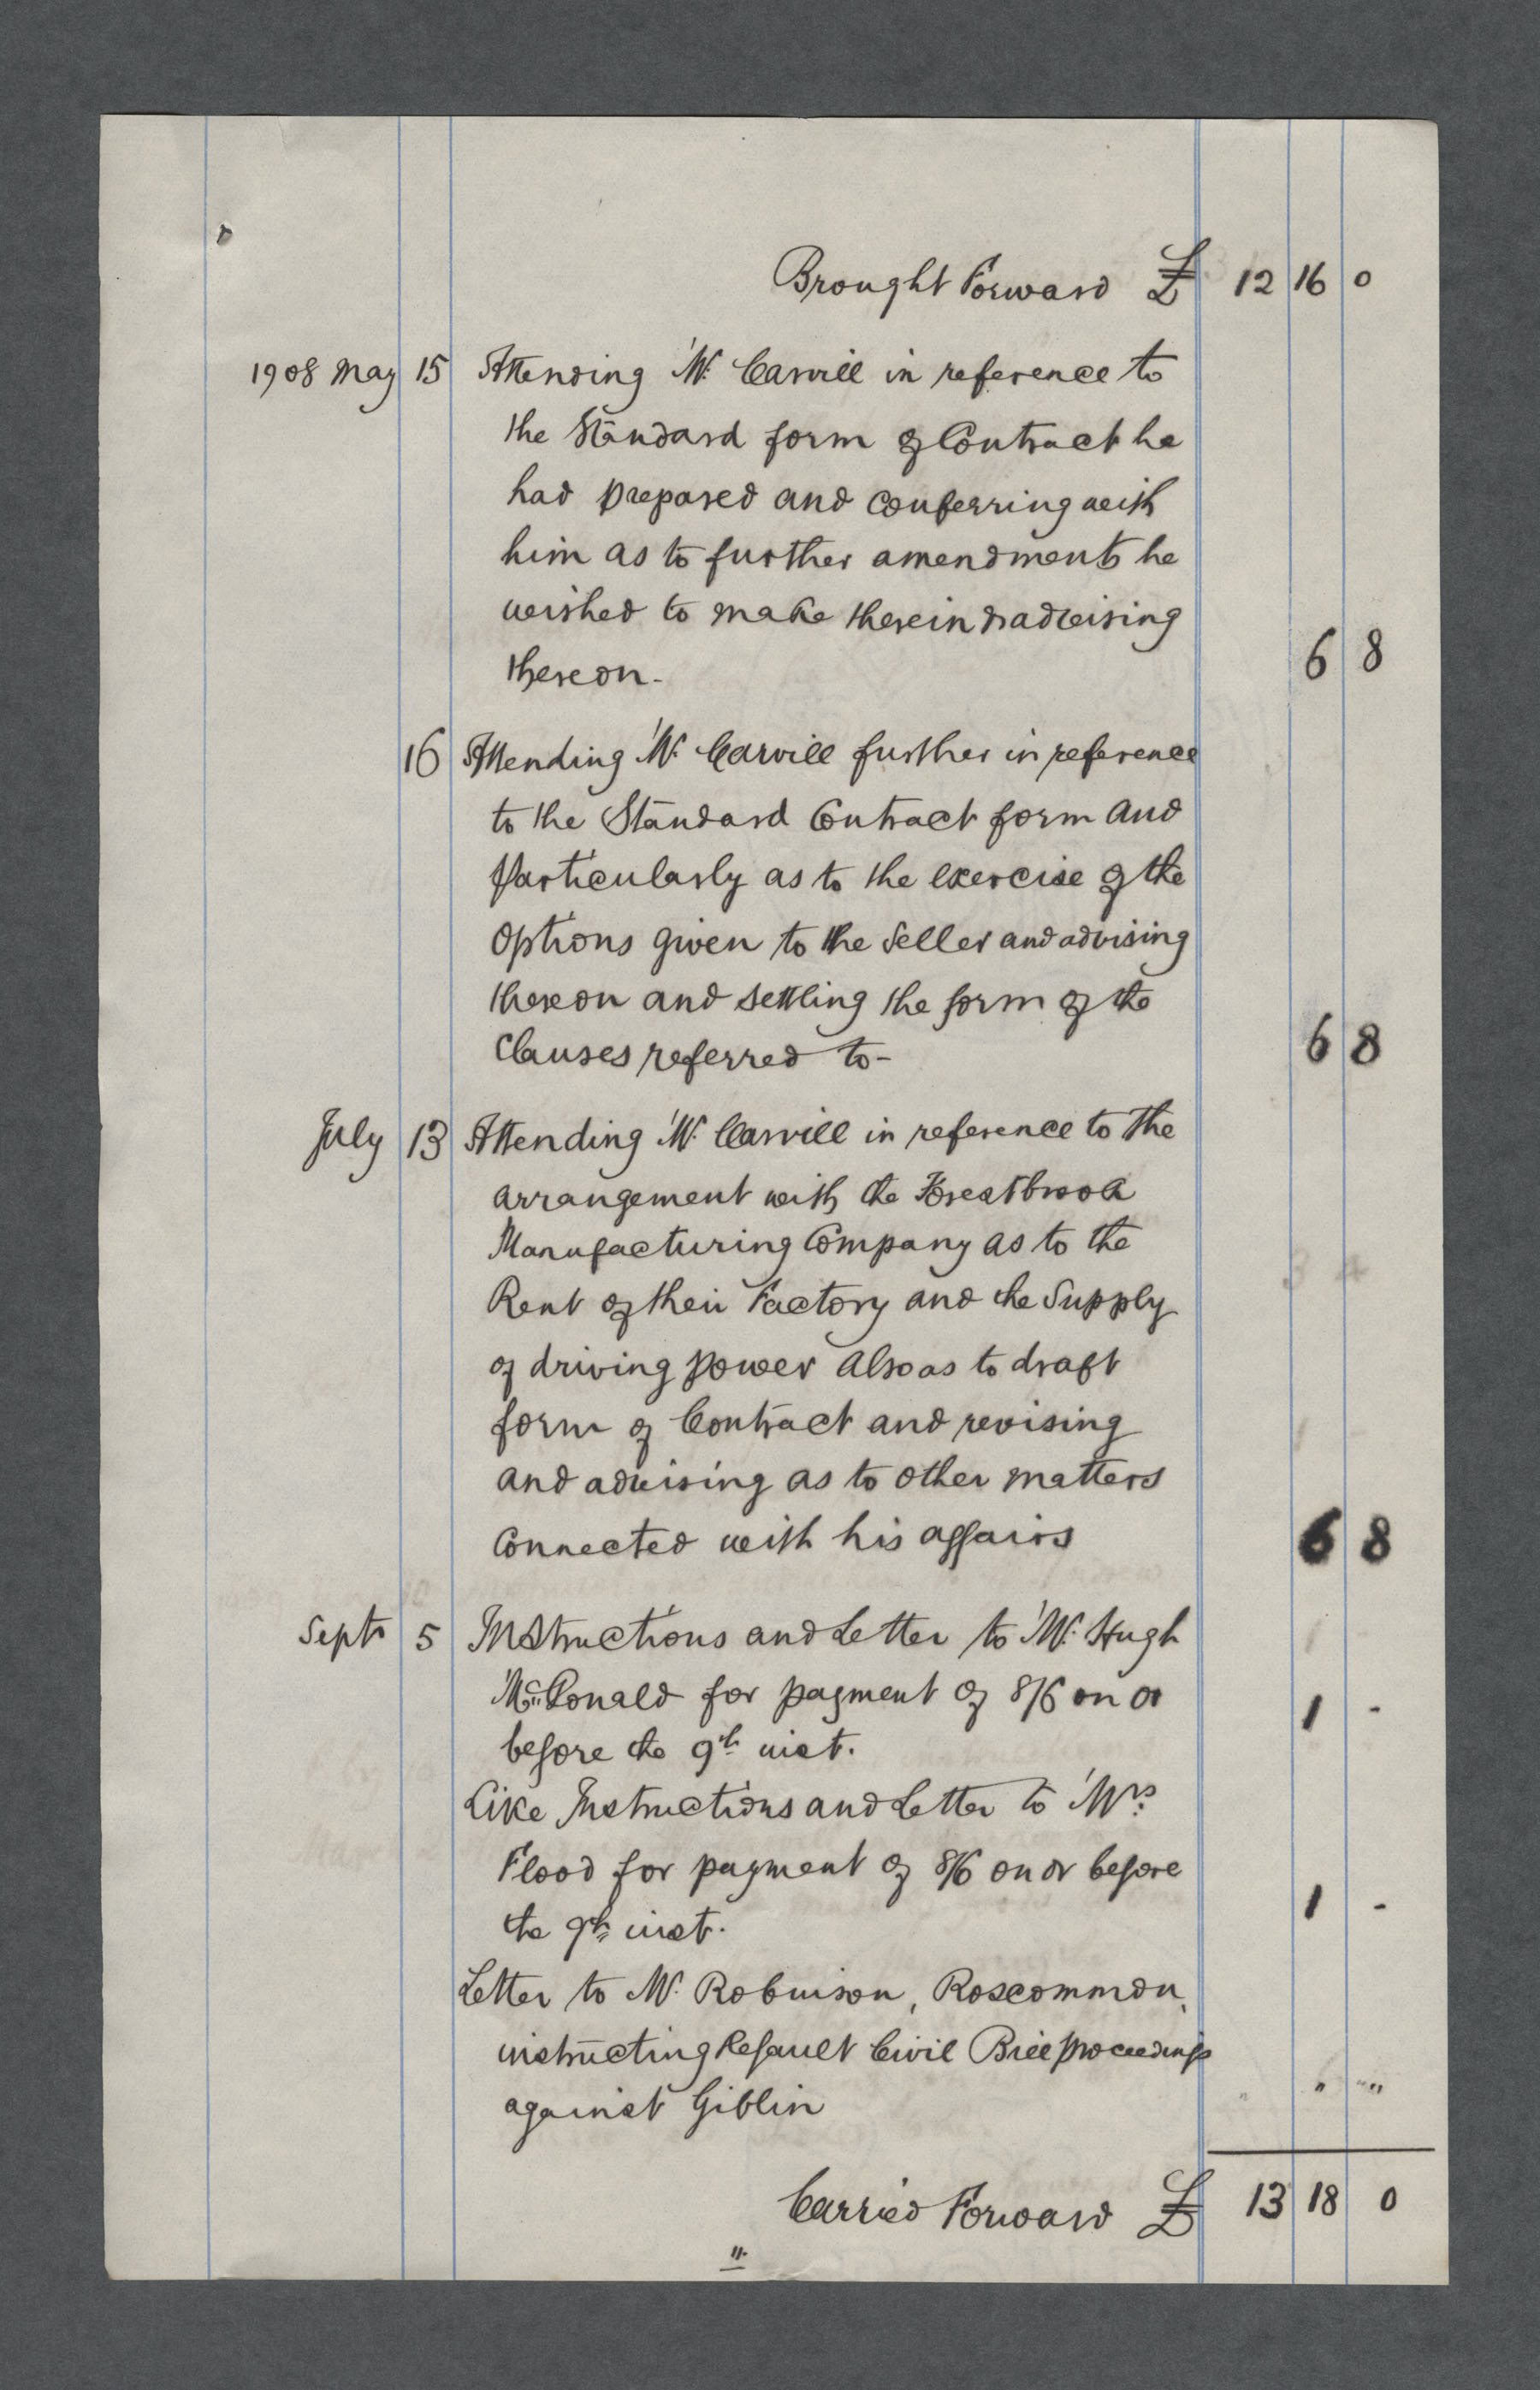 Brought Forward £ 12 16 0
1908 May 15 Attending Mr. Carvill in reference to
the Standard form of Contract he
had prepared and conferring with
him as to further amendments he
wished to make therein & advising
thereon - 6 8
16 Attending Mr. Carvill further in reference
to the Standard Contract form and
particularly as to the exercise of the
options given to the Seller and advising
thereon and settling the form of the
Clauses referred to - 6 8
July 13 Attending Mr. Carvill in reference to the
arrangement with the Forestbrook
Manufacturing Company as to the
Rent of their Factory and the Supply
of driving power Also as to draft
form of Contract and revising
and advising as to other matters
connected with his affairs 6 8
Septr 5 Instructions and Letter to Mr. Hugh
McDonald for payment of 8/6 on or 1 -
before the 9th inst.
Like Instructions and Letter to Mrs.
Flood for payment of 8/6 on or before
the 9th inst. 1 -
Letter to Mr. Robinson, Roscommon,
instructing Default Civil Bill proceedings
against Giblin " " "
Carried Forward £ 13 18 0
11.